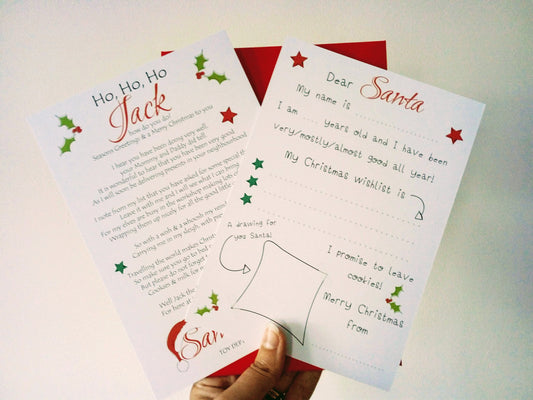 Ho, Ho, Ho
Jack
how do you do!
Seasons Greetings & a Merry Christmas to you
I hear you have been doing very well,
your Mommy and Daddy did tell.
It is wonderful to hear that you have been very good
As I will soon be delivering presents in your neighbourhood
I note from my list that you have asked for some special
Leave it with me and I will see what I can
For my elves are busy in the workshop making lots of
Wrapping them up nicely for all the good little
So with a wish & a whoosh my
Carrying me in my sleigh, with
Travelling the world makes
So make sure you go to bed
But please do not forget
Cookies & milk for
Well Jack the
For here at
San
TOY DEP
Dear Santa
My name is
I am ...... years old and I have been
very/mostly/almost good all year!
My Christmas wishlist is
A drawing for
you Santa!
I promise to leave
cookies!
Merry Christmas
from